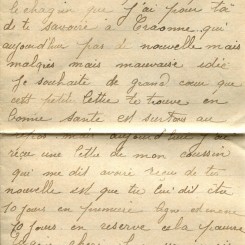 le chagrin que j'ai pour toi
de te savoire à Craonne qui
aujourd'hui pas de nouvelle mais
malgrés mais mauvaise idié
Je souhaite de grand cœur que
cett petit lettre te trouve en
bonne santé est surtous au
aujourd'hui
reçu une lettre de mon coussin
qui me dis avoir reçu de tes
nouvelle est que tu lui dis être
10 jours en premiere ligne et
10 jours en reserve cela